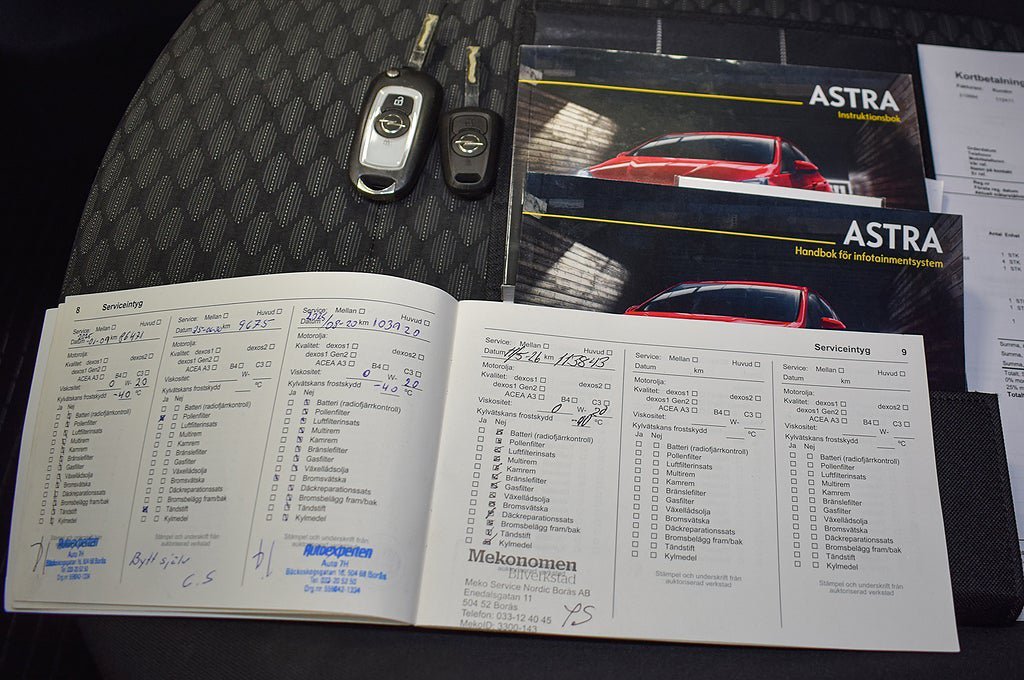 ASTRA
Instruktionsbok
ASTRA
Handbok för infotainmentsystem
Kortbetalning
8 Serviceintyg
Service: Mellan Huvud
Datum km
Motorolja:
Kvalitet: dexos1 dexos2
dexos1 Gen2
ACEA A3 B4 C3
Viskositet: 0 W- 20
Kylvätskans frostskydd -40 °C
Ja Nej
Batteri (radiofjärrkontroll)
Pollenfilter
Luftfilterinsats
Multirem
Kamrem
Bränslefilter
Gasfilter
Växellådsolja
Bromsvätska
Däckreparationssats
Bromsbelägg fram/bak
Tändstift
Kylmedel
Autoexperten
Auto 7H
Service: Mellan Huvud
Datum km 9675
Motorolja:
Kvalitet: dexos1 dexos2
dexos1 Gen2
ACEA A3 B4 C3
Viskositet: W-
Kylvätskans frostskydd °C
Ja Nej
Batteri (radiofjärrkontroll)
Pollenfilter
Luftfilterinsats
Multirem
Kamrem
Bränslefilter
Gasfilter
Växellådsolja
Bromsvätska
Däckreparationssats
Bromsbelägg fram/bak
Tändstift
Kylmedel
Stämpel och underskrift från
auktoriserad verkstad
Bytt själv
C.S
Service: Mellan Huvud
Datum 08-20 km 103920
Motorolja:
Kvalitet: dexos1 dexos2
dexos1 Gen2
ACEA A3 B4 C3
Viskositet: 0 W- 20
Kylvätskans frostskydd -40 °C
Ja Nej
Batteri (radiofjärrkontroll)
Pollenfilter
Luftfilterinsats
Multirem
Kamrem
Bränslefilter
Gasfilter
Växellådsolja
Bromsvätska
Däckreparationssats
Bromsbelägg fram/bak
Tändstift
Kylmedel
Autoexperten
Auto 7H
Bäckoskogsgatan 16, 504 68 Borås
Serviceintyg 9
Service: Mellan Huvud
Datum 11/5-26 km 113843
Motorolja:
Kvalitet: dexos1 dexos2
dexos1 Gen2
ACEA A3 B4 C3
Viskositet: 0 W- 20
Kylvätskans frostskydd -40 °C
Ja Nej
Batteri (radiofjärrkontroll)
Pollenfilter
Luftfilterinsats
Multirem
Kamrem
Bränslefilter
Gasfilter
Växellådsolja
Bromsvätska
Däckreparationssats
Bromsbelägg fram/bak
Tändstift
Kylmedel
Mekonomen
bilverkstad
Meko Service Nordic Borås AB
Enedalsgatan 11
504 52 Borås
Telefon: 033-12 40 45
MekoID: 3300-143
Service: Mellan Huvud
Datum km
Motorolja:
Kvalitet: dexos1 dexos2
dexos1 Gen2
ACEA A3 B4 C3
Viskositet: W-
Kylvätskans frostskydd °C
Ja Nej
Batteri (radiofjärrkontroll)
Pollenfilter
Luftfilterinsats
Multirem
Kamrem
Bränslefilter
Gasfilter
Växellådsolja
Bromsvätska
Däckreparationssats
Bromsbelägg fram/bak
Tändstift
Kylmedel
Stämpel och underskrift från
auktoriserad verkstad
Service: Mellan Huvud
Datum km
Motorolja:
Kvalitet: dexos1 dexos2
dexos1 Gen2
ACEA A3 B4 C3
Viskositet: W-
Kylvätskans frostskydd °C
Ja Nej
Batteri (radiofjärrkontroll)
Pollenfilter
Luftfilterinsats
Multirem
Kamrem
Bränslefilter
Gasfilter
Växellådsolja
Bromsvätska
Däckreparationssats
Bromsbelägg fram/bak
Tändstift
Kylmedel
Stämpel och underskrift från
auktoriserad verkstad